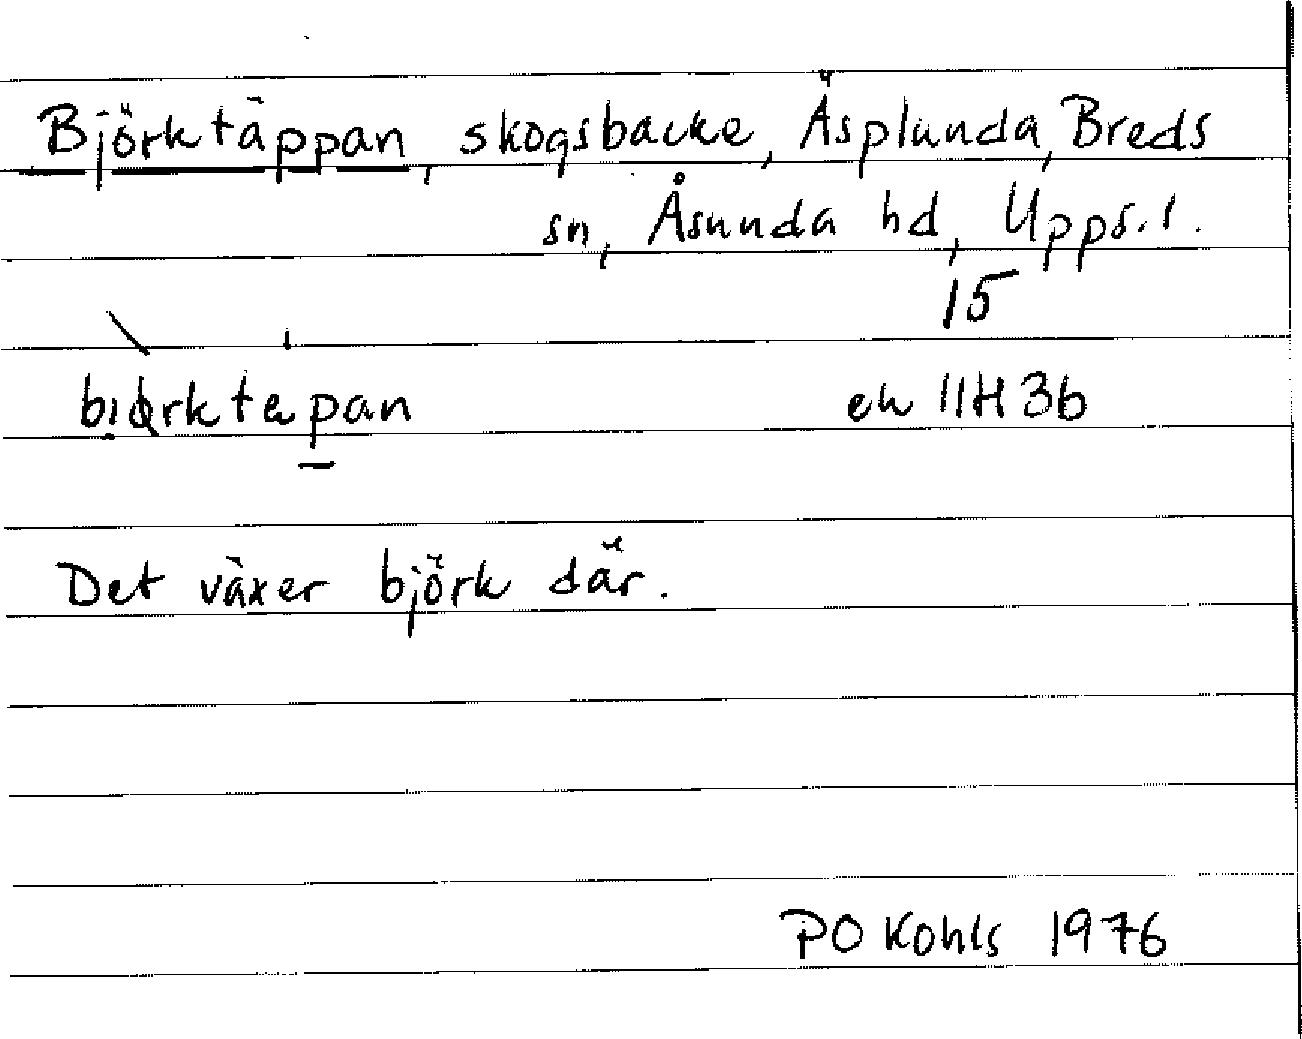 Björktäppan, skogsbacke, Äsplunda, Breds
sn, Åsunda hd, Upps. l.
15
biø̨rktäpan ek 11H 3b
Det växer björk där.
PO Kohls 1976